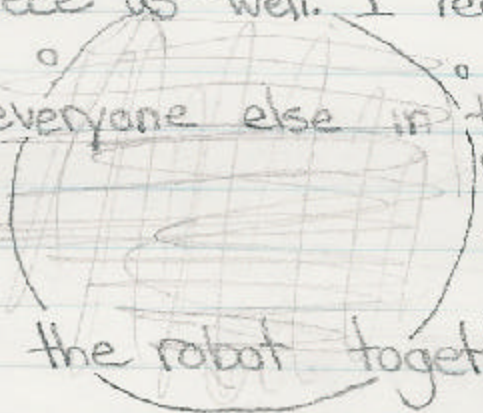 us well. I
everyone else in
the robot